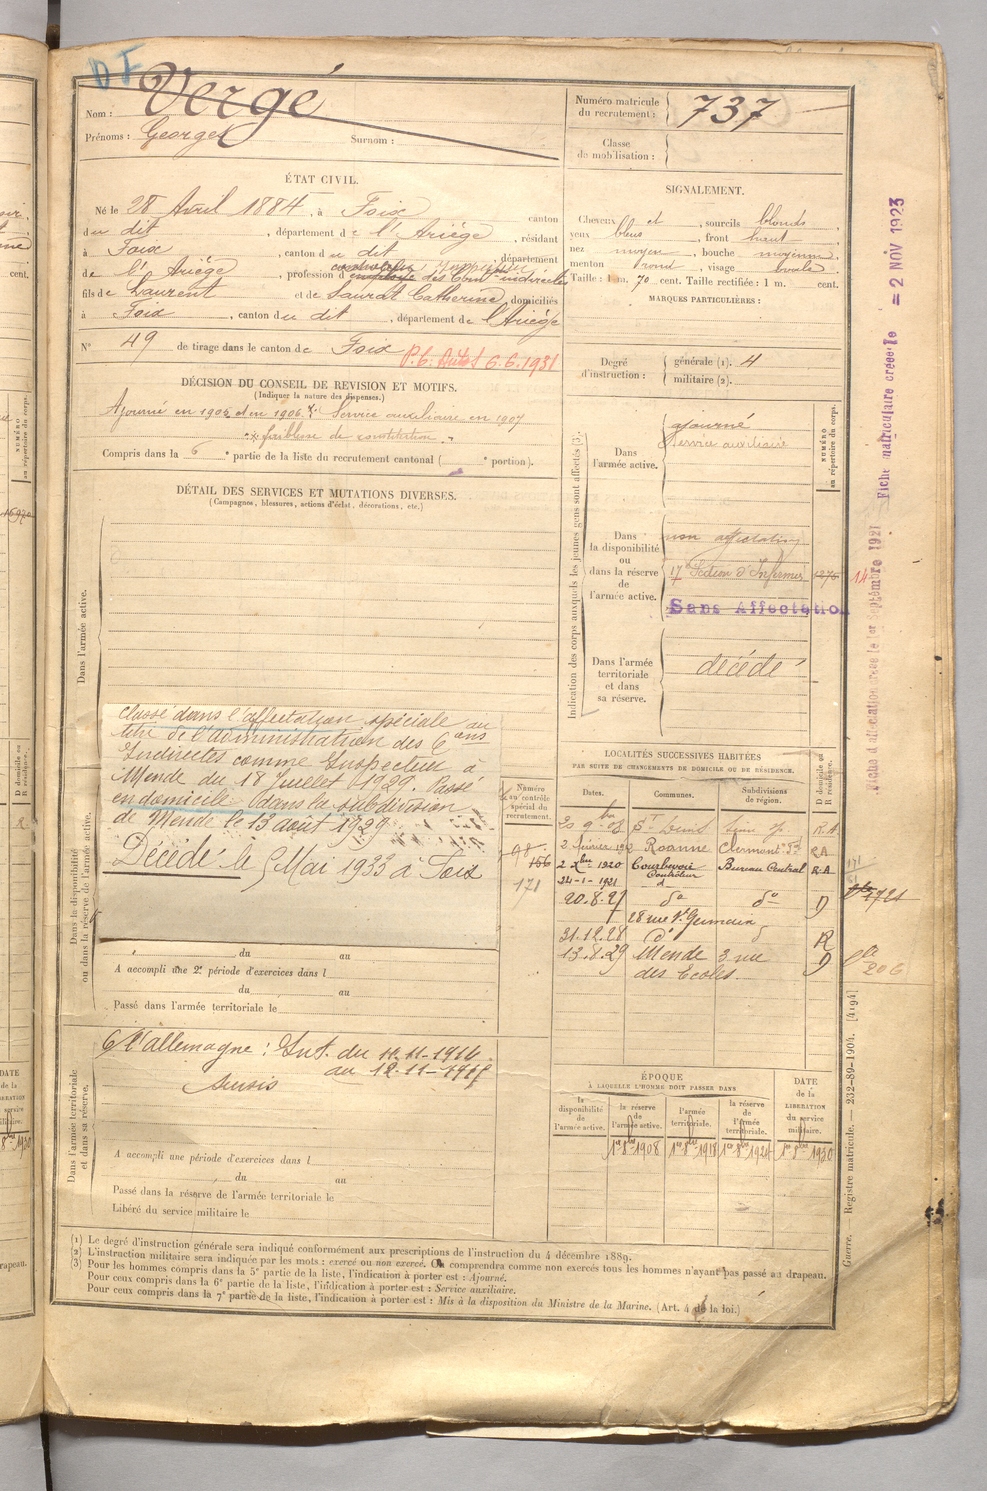 DF
Nom : Vergé
Prénoms : Georges Surnom :
Numéro matricule du recrutement : 737
Classe de mobilisation :
ÉTAT CIVIL.
Né le 28 Avril 1884, à Foix canton
du dit, département de l'Ariège, résidant
à Foix, canton du dit, département
de l'Ariège, profession d' des Contons indirectes
fils de Laurent et de Saurat Catherine, domiciliés
à Foix, canton du dit, département de l'Ariège
N° 49 de tirage dans le canton de Foix
6.6.1931
SIGNALEMENT.
Cheveux et, sourcils blonds
yeux bleus, front haut
nez moyen, bouche moyenne
menton rond, visage ovale
Taille : 1 m. 70 cent. Taille rectifiée : 1 m. cent.
MARQUES PARTICULIÈRES :
Degré d'instruction : générale (1). 4
militaire (2).
DÉCISION DU CONSEIL DE REVISION ET MOTIFS.
(Indiquer la nature des dispenses.)
Ajourné en 1905 et en 1906. Service auxiliaire en 1907
faiblesse de constitution
Compris dans la 6e partie de la liste du recrutement cantonal ( e portion).
DÉTAIL DES SERVICES ET MUTATIONS DIVERSES.
(Campagnes, blessures, actions d'éclat, décorations, etc.)
Dans l'armée active.
Dans la disponibilité ou dans la réserve de l'armée active.
Classé dans l'affectation spéciale au
titre de l'administration des Cons
Indirectes comme Inspecteur à
Mende du 18 Juillet 1929. Passé
en domicile dans la subdivision
de Mende le 13 août 1929
Décédé le 5 Mai 1933 à Foix
du au
A accompli une 2e période d'exercices dans l
du au
Passé dans l'armée territoriale le
Dans l'armée territoriale et dans sa réserve.
C l'allemagne : Int. du 11.11-1916
au 12.11-1917
Sursis
A accompli une période d'exercices dans l
du au
Passé dans la réserve de l'armée territoriale le
Libéré du service militaire le
Indication des corps auxquels les jeunes gens sont affectés (3).
NUMÉRO au répertoire du corps.
Dans l'armée active.
ajourné
Service auxiliaire
Dans la disponibilité ou dans la réserve de l'armée active.
non affectation
17e Section d'Infirmiers 1275 14
Sans Affectation
Dans l'armée territoriale et dans sa réserve.
décédé
Numéro au contrôle spécial du recrutement.
156
171
LOCALITÉS SUCCESSIVES HABITÉES
PAR SUITE DE CHANGEMENTS DE DOMICILE OU DE RÉSIDENCE.
Dates. Communes. Subdivisions de région. D domicile ou R résidence.
R.A
2 février Roanne Clermont Fd RA
2 Xbre 1920 Courbevoie Bureau Central R.A
24-1-1921 Contrôleur do
20.8.27 do do D
28 rue St Germain
31.12.28 do R
13.8.29 Mende 3 rue D
des Ecoles
206
ÉPOQUE
À LAQUELLE L'HOMME DOIT PASSER DANS
la disponibilité de l'armée active. la réserve de l'armée active. l'armée territoriale. la réserve de l'armée territoriale. DATE de la LIBÉRATION du service militaire.
1er 8bre 1908 1er 8bre 1918 1er 8bre 1924 1er 8bre 1930
Fiche d'affectation créée le 1er Septembre 1921
Fiche matriculaire créée le = 2 NOV 1923
Guerre. — Registre matricule. — 232-89-1904. [4194]
(1) Le degré d'instruction générale sera indiqué conformément aux prescriptions de l'instruction du 4 décembre 1889.
(2) L'instruction militaire sera indiquée par les mots : exercé ou non exercé. On comprendra comme non exercés tous les hommes n'ayant pas passé au drapeau.
(3) Pour les hommes compris dans la 5e partie de la liste, l'indication à porter est : Ajourné.
Pour ceux compris dans la 6e partie de la liste, l'indication à porter est : Service auxiliaire.
Pour ceux compris dans la 7e partie de la liste, l'indication à porter est : Mis à la disposition du Ministre de la Marine. (Art. 4 de la loi.)